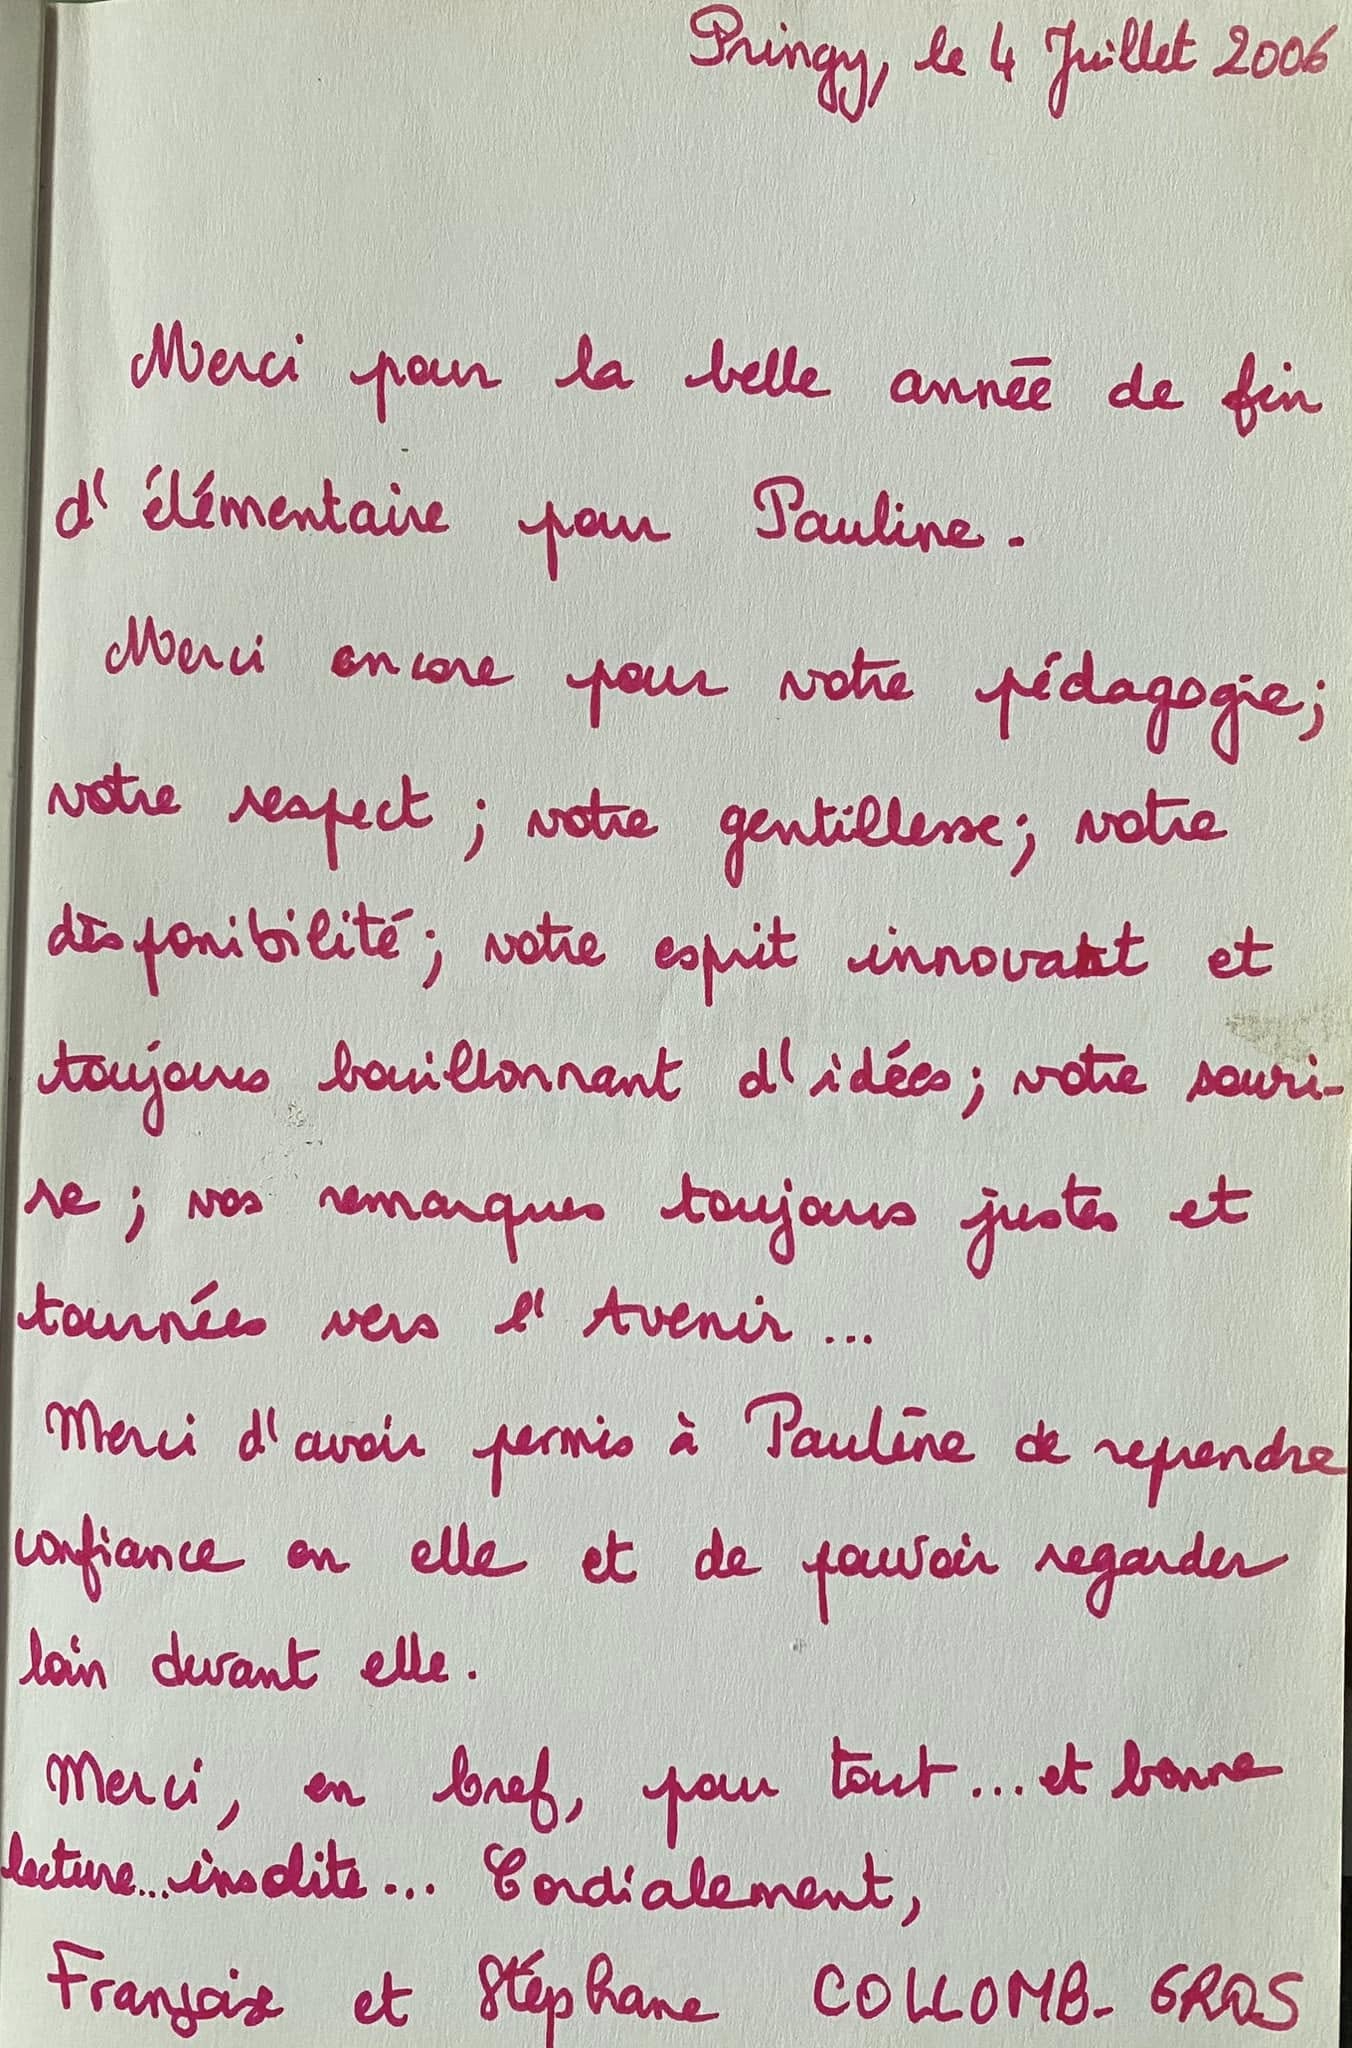 Pringy, le 4 Juillet 2006
Merci pour la belle année de fin
d'élémentaire pour Pauline.
Merci encore pour votre pédagogie;
votre respect; votre gentillesse; votre
disponibilité; votre esprit innovant et
toujours bouillonnant d'idées; votre souri-
re; vos remarques toujours justes et
tournées vers l'Avenir...
Merci d'avoir permis à Pauline de reprendre
confiance en elle et de pouvoir regarder
loin devant elle.
Merci, en bref, pour tout... et bonne
lecture... insolite... Cordialement,
Françoise et Stéphane COLLOMB-GROS